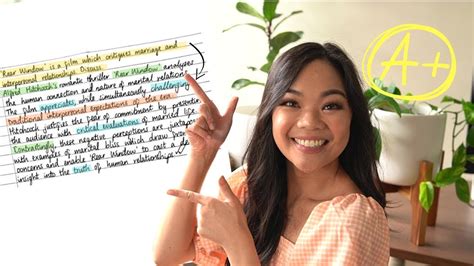 "Rear Window" is a film which critiques marriage and
interpersonal relationships. Discuss.
Alfred Hitchcock's romantic thriller 'Rear Window' analyses
the human connection and nature of marital relation
The film appreciates, while simultaneously challenging
traditional interpersonal expectations of the era.
Hitchcock justifies the fear of commitment by presentin
the audience with critical evaluations of married life
Contrastingly, these negative perceptions are juxtapo
with examples of marital bliss which draw
concerns and enable 'Rear Window' to cast a
insight into the truth of human relationships.
A+